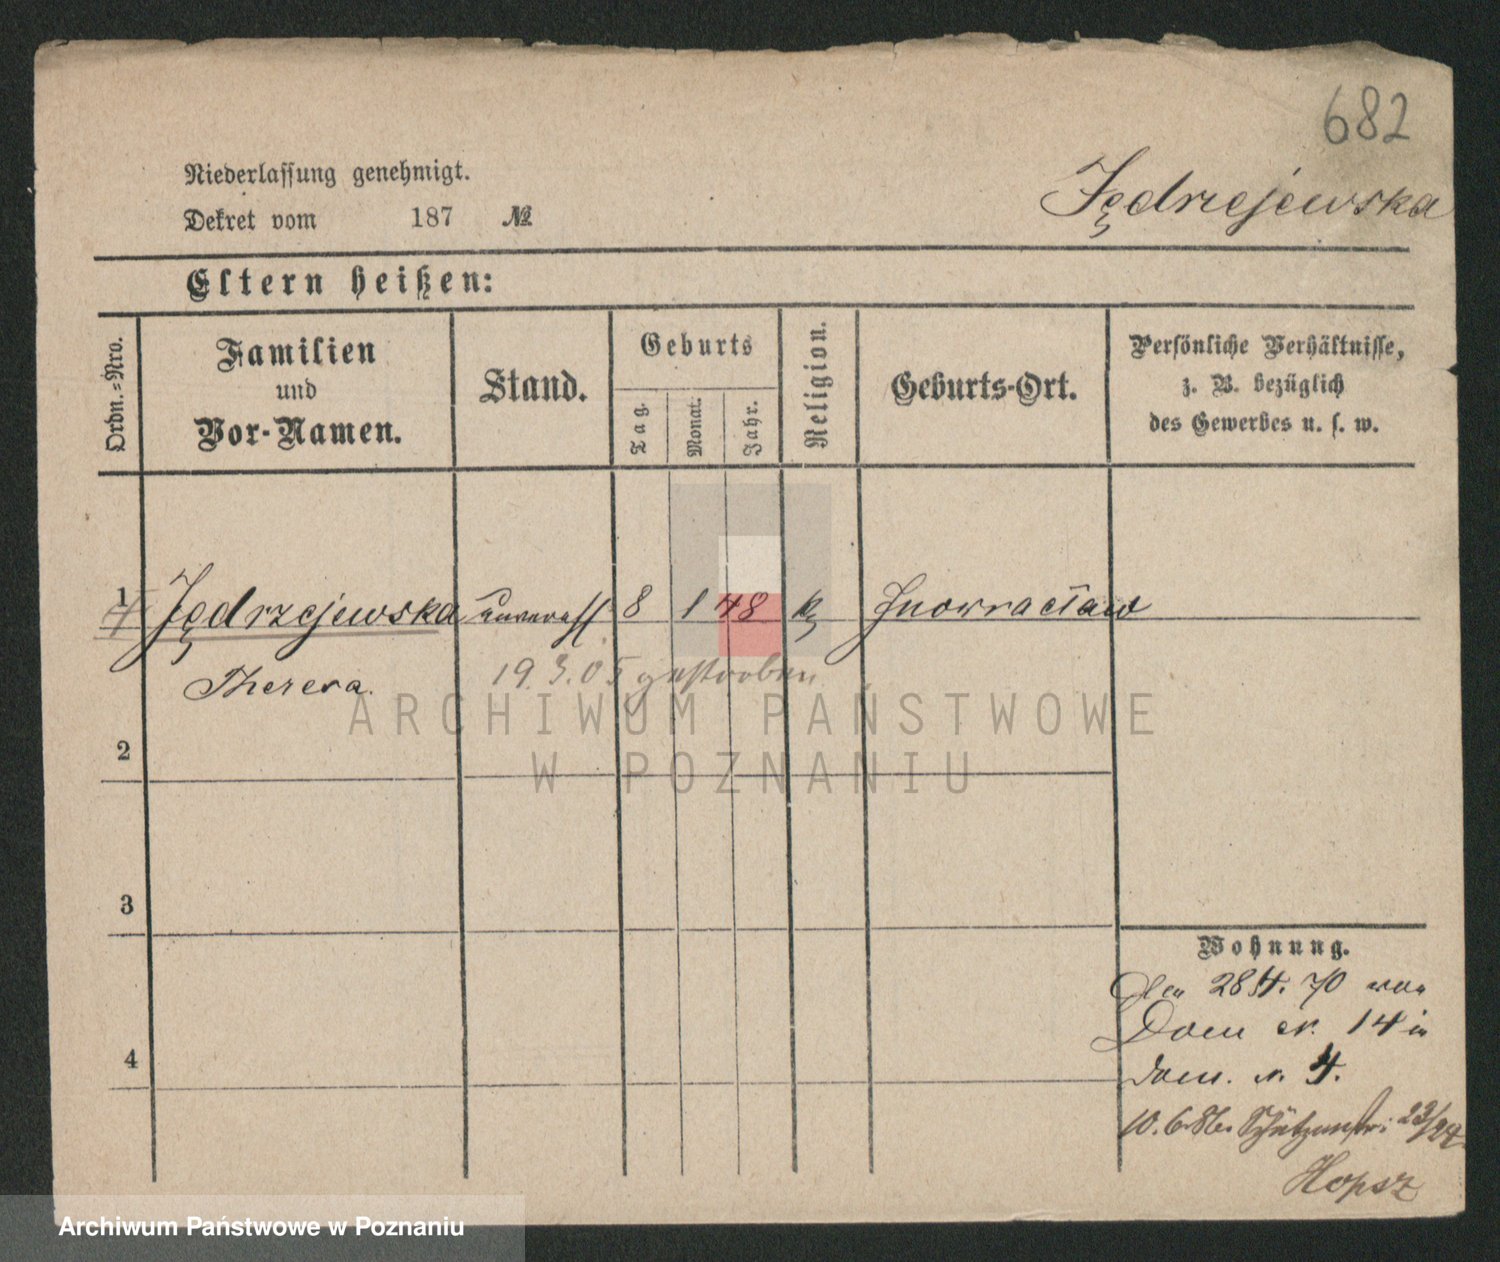 682
Niederlassung genehmigt.
Jędrzejewska
Dekret vom 187 №
Eltern heißen:
Ordn.=Nro.
Familien
und
Vor-Namen.
Stand.
Geburts
Tag.
Monat.
Jahr.
Religion.
Geburts-Ort.
Persönliche Verhältnisse,
z. B. bezüglich
des Gewerbes u. s. w.
1 Jędrzejewska 8 1 48 k Inowracław
Theresa.
19.3.05 gestorben
2
3
4
Wohnung.
Den 28/4. 70 von
Dom N. 14 in
Dom. N. 4.
10.6.86. Schützenstr: 23/24
Hopsz
ARCHIWUM PAŃSTWOWE
W POZNANIU
Archiwum Państwowe w Poznaniu